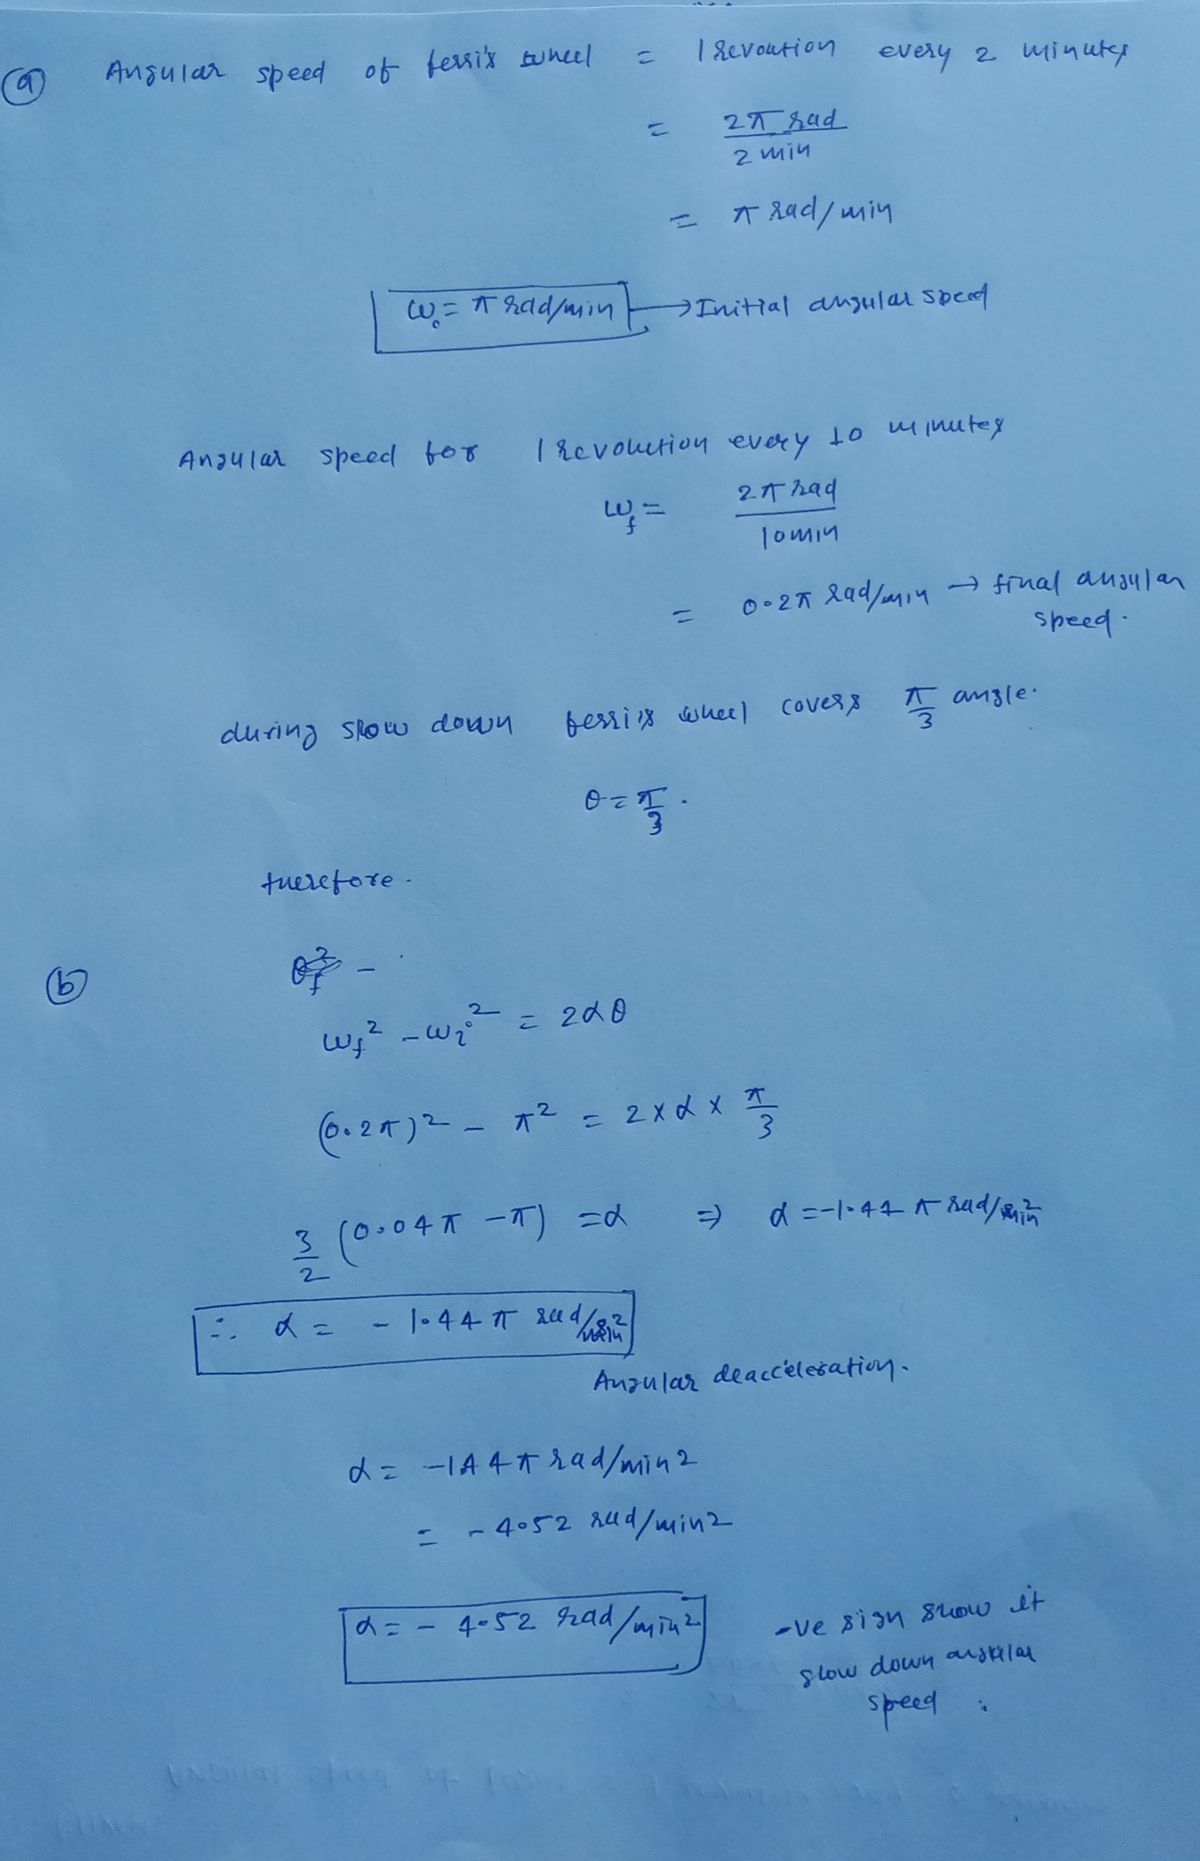 (a) Angular speed of ferris wheel = 1 revoution every 2 minutes
= 2π rad / 2 min
= π rad/min
ω₀ = π rad/min → Initial angular speed
Angular speed for 1 revolution every 10 minutes
ω_f = 2π rad / 10 min
= 0.2π rad/min → final angular
speed.
during slow down ferris wheel covers π/3 angle.
θ = π/3 .
therefore .
(b)
ω_f² - ω_i² = 2αθ
(0.2π)² - π² = 2 × α × π/3
3/2 (0.04π - π) = α ⇒ α = -1.44 π rad/min²
∴ α = - 1.44 π rad/min²
Angular deacceleration.
α = -1.44π rad/min2
= - 4.52 rad/min2
α = - 4.52 rad/min²
-ve sign show it
slow down angular
speed :